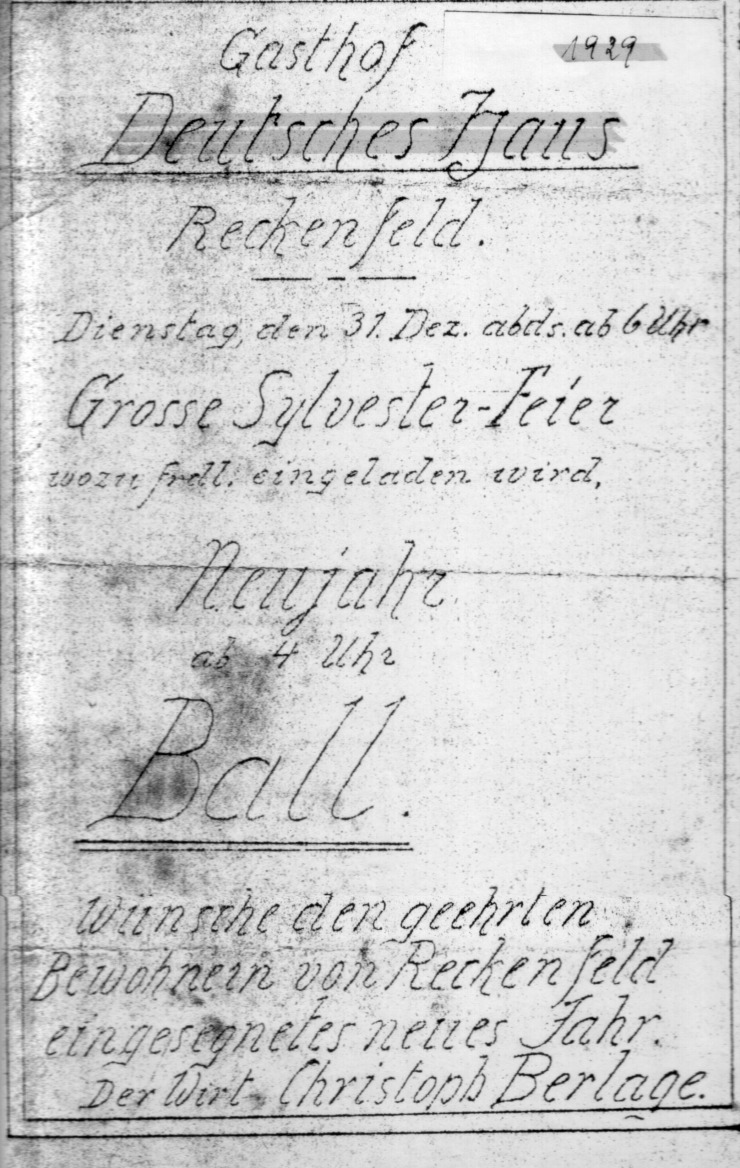 Gasthof
1929
Deutsches Haus
Reckenfeld.
Dienstag, den 31. Dez. abds. ab 6 Uhr
Grosse Sylvester-Feier
wozu frdl. eingeladen wird,
Neujahr
ab 4 Uhr
Ball.
Wünsche den geehrten
Bewohnern von Reckenfeld
eingesegnetes neues Jahr.
Der Wirt Christoph Berlage.